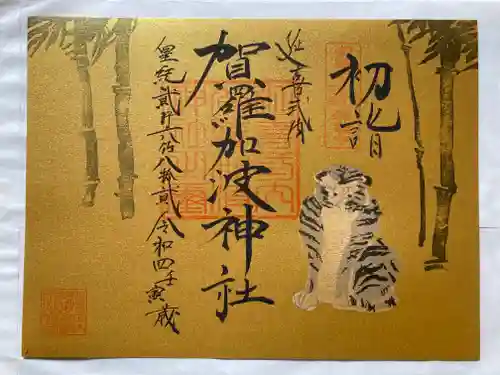 初詣
延喜式内
賀羅加波神社
皇紀貳千六佰八拾貳令和四壬寅歳